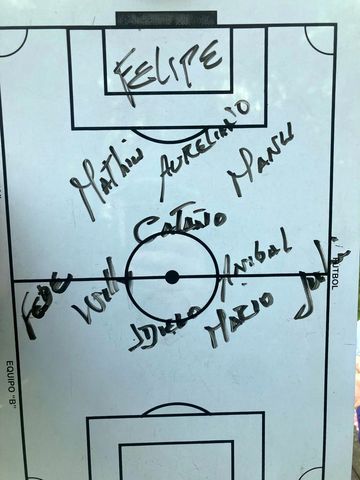 FELIPE
Mathiu AURELIANO MANU
CATAÑO
FEDE Will ANIBAL
DIEGO MARIO
FUTBOL
EQUIPO "B"